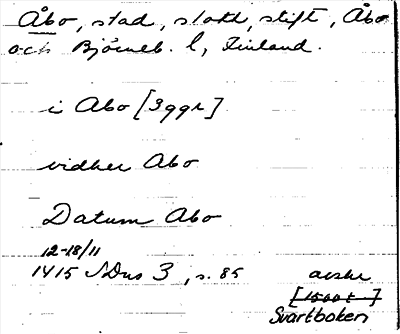 Åbo, stad, slott, stift, Åbo
och Björneb. l, Finland.
i Abo [3ggr]
vidher Abo
Datum Abo
12-18/11
1415 SDns 3, s. 85 avskr
[1500t ]
Svartboken